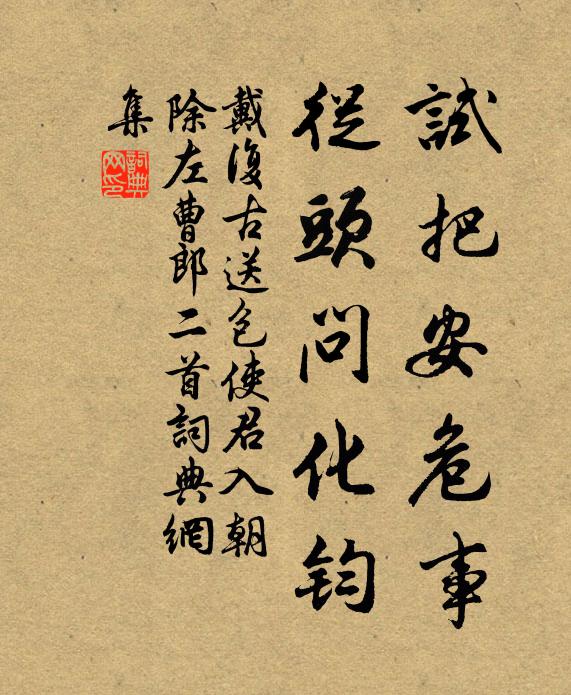 試把安危事
從頭問化鈞
戴復古送包使君入朝
除左曹郎二首詞典網
集
詞典
网印